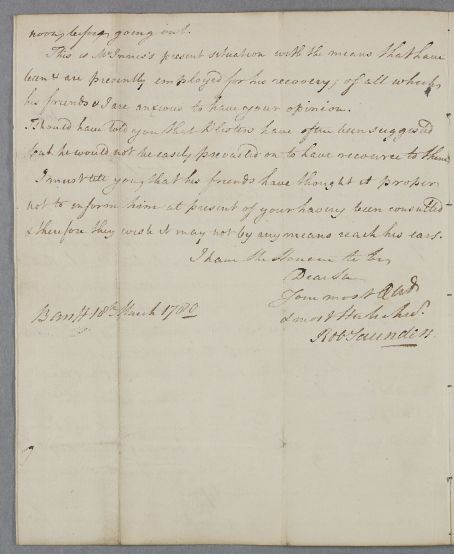 noon, before going out.
This is Mr Innes's present situation with the means that have
been & are presently employed for his recovery; of all which
his friends & I are anxious to have your opinion.
I should have told you that Blisters have often been suggested
but he would not be easily prevailed on to have recource to them
I must tell you, that his friends have thought it proper
not to inform him at present of your having been consulted
& therefore they wish it may not by any means reach his ears.
I have the Honour to be,
Dear Sir
Your most Obdt
& most Hule Servt.
Banff 18th March 1780
Robt Saunders.